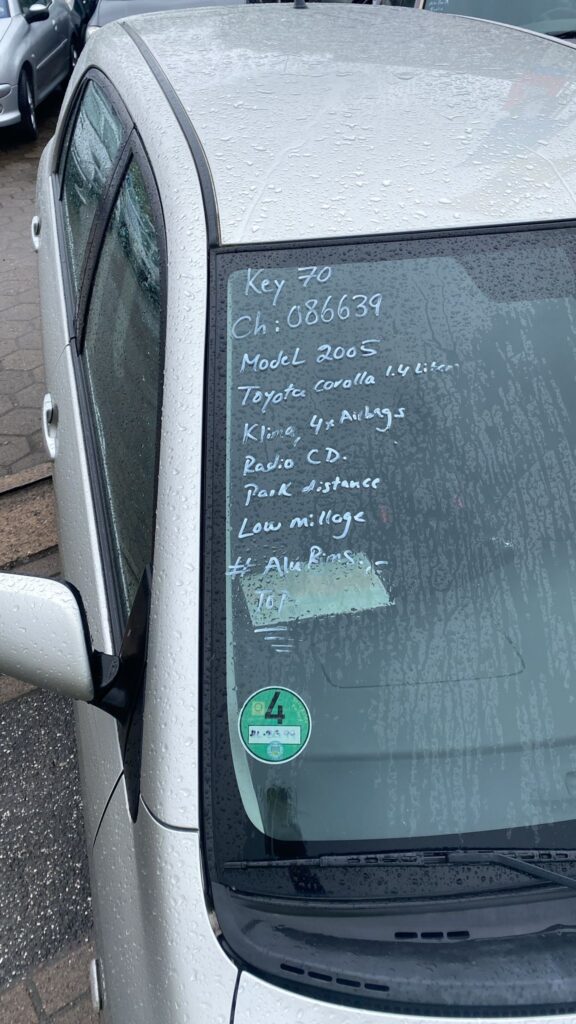 Key 70
Ch: 086639
Model 2005
Toyota corolla 1.4 Liter
Klima, 4x Airbags
Radio CD.
Park distance
Low millage
# Alu Rims,-
Top
4